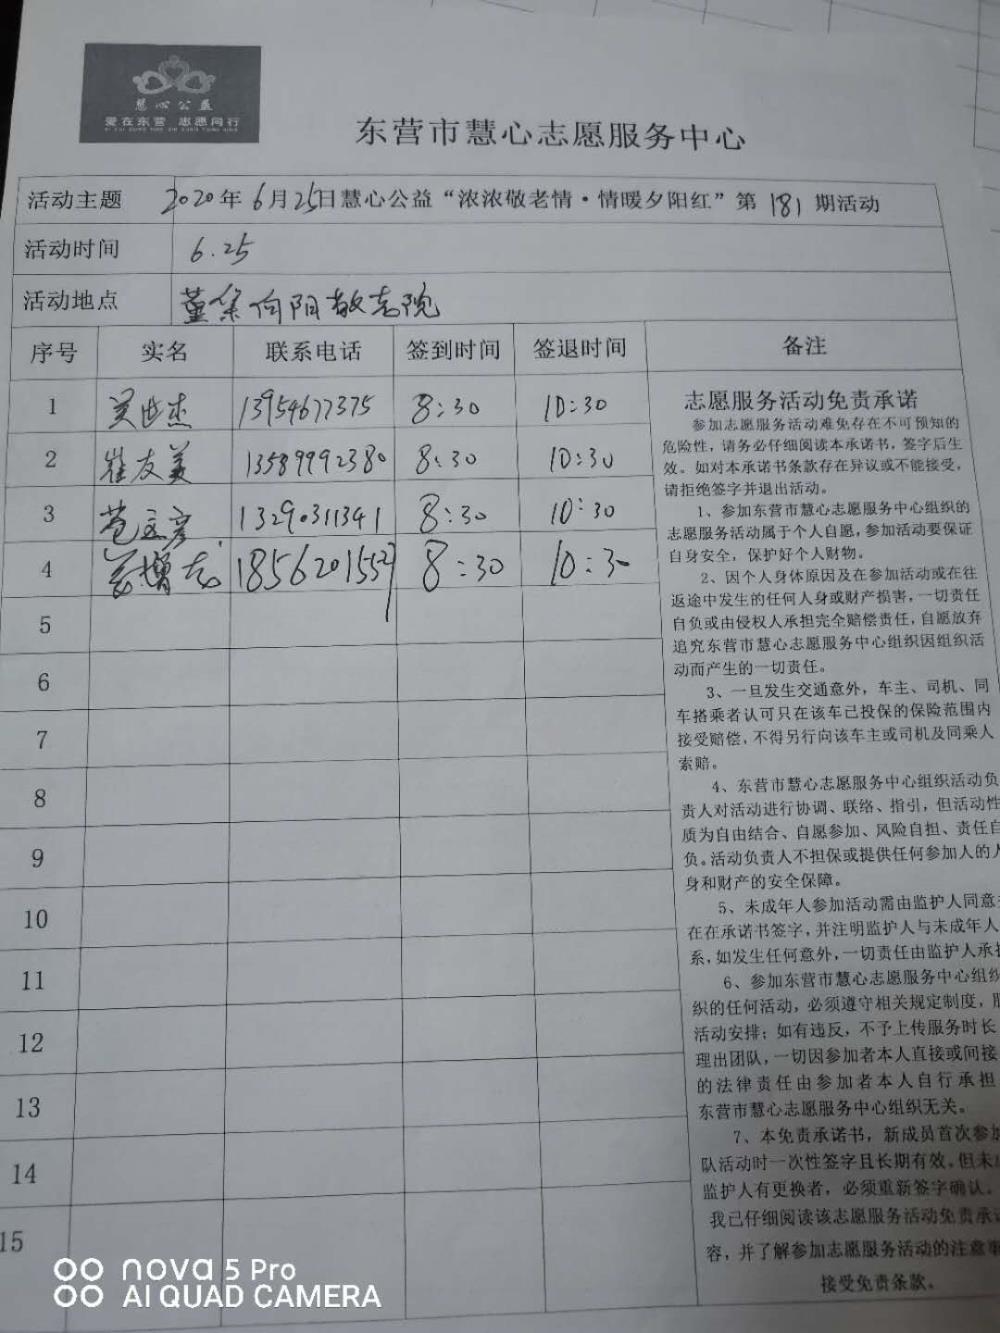 慧心公益
爱在东营 志愿同行
东营市慧心志愿服务中心
活动主题 2020年6月25日慧心公益“浓浓敬老情·情暖夕阳红”第181期活动
活动时间 6.25
活动地点 董集向阳敬老院
序号 实名 联系电话 签到时间 签退时间 备注
1 吴世杰 13954677375 8:30 10:30
2 崔友美 13589992380 8:30 10:30
3 13290311341 8:30 10:30
4 8:30 10:30
5
6
7
8
9
10
11
12
13
14
15
志愿服务活动免责承诺
参加志愿服务活动难免存在不可预知的
危险性，请务必仔细阅读本承诺书，签字后生
效。如对本承诺书条款存在异议或不能接受，
请拒绝签字并退出活动。
1、参加东营市慧心志愿服务中心组织的
志愿服务活动属于个人自愿，参加活动要保证
自身安全，保护好个人财物。
2、因个人身体原因及在参加活动或在往
返途中发生的任何人身或财产损害，一切责任
自负或由侵权人承担完全赔偿责任，自愿放弃
追究东营市慧心志愿服务中心组织因组织活
动而产生的一切责任。
3、一旦发生交通意外，车主、司机、同
车搭乘者认可只在该车已投保的保险范围内
接受赔偿，不得另行向该车主或司机及同乘人
索赔。
4、东营市慧心志愿服务中心组织活动负
责人对活动进行协调、联络、指引，但活动性
质为自由结合、自愿参加、风险自担、责任自
负。活动负责人不担保或提供任何参加人的人
身和财产的安全保障。
5、未成年人参加活动需由监护人同意
在在承诺书签字，并注明监护人与未成年人
系，如发生任何意外，一切责任由监护人承
6、参加东营市慧心志愿服务中心组织
织的任何活动，必须遵守相关规定制度，服
活动安排；如有违反，不予上传服务时长
理出团队，一切因参加者本人直接或间接
的法律责任由参加者本人自行承担
东营市慧心志愿服务中心组织无关。
7、本免责承诺书，新成员首次参加
队活动时一次性签字且长期有效。但未
监护人有更换者，必须重新签字确认。
我已仔细阅读该志愿服务活动免责承
容，并了解参加志愿服务活动的注意事
接受免责条款。
nova 5 Pro
AI QUAD CAMERA